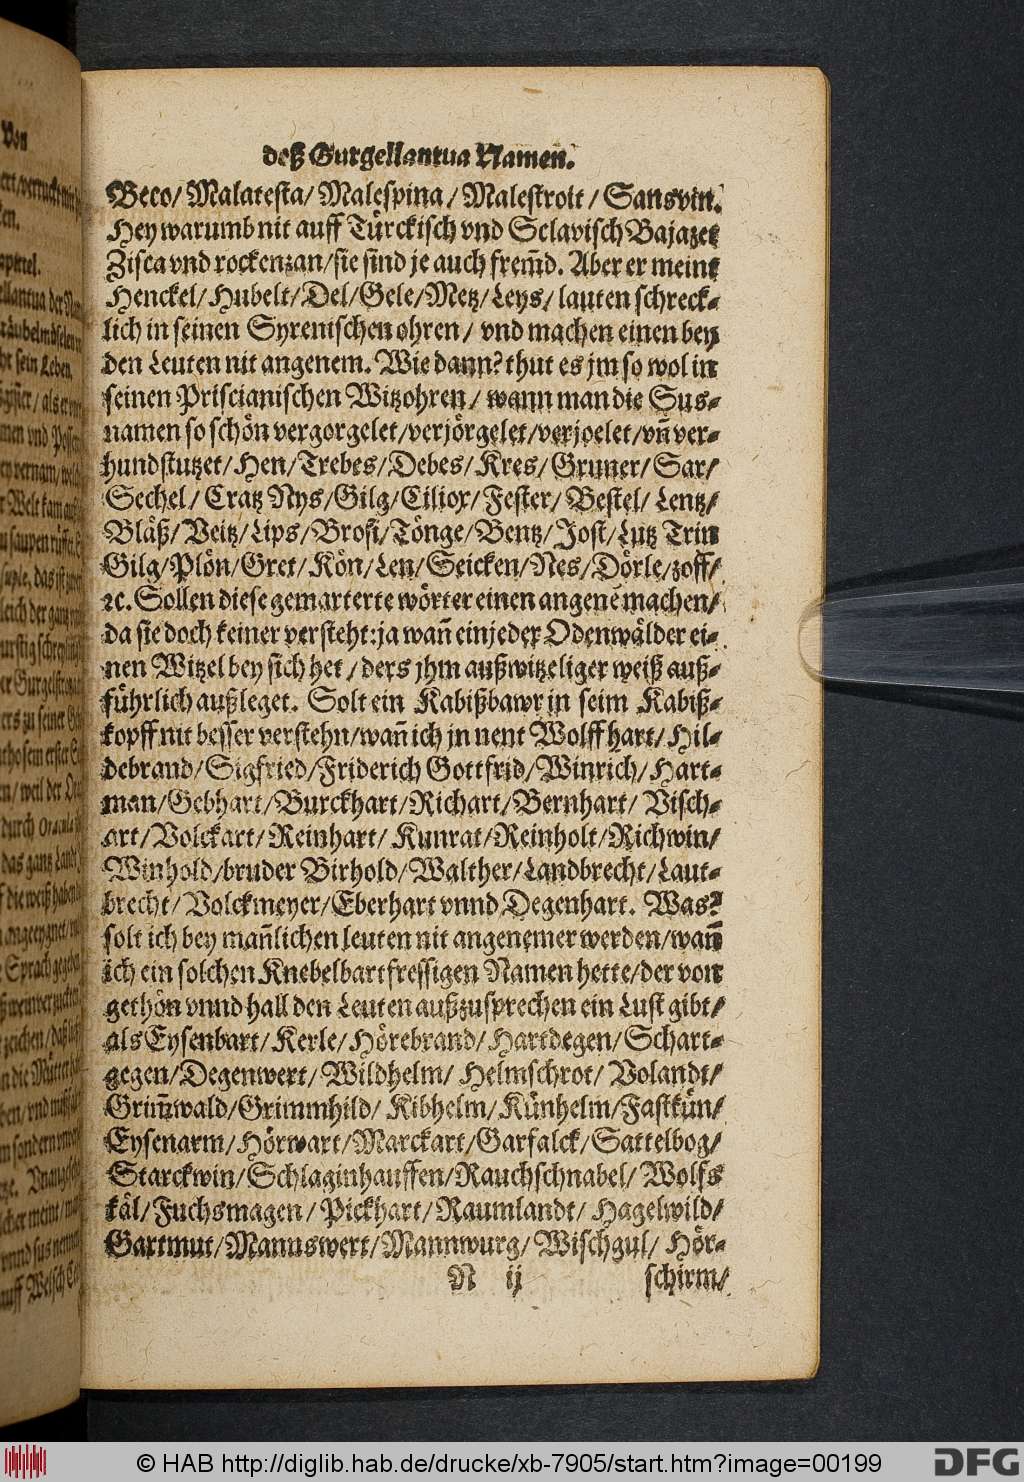 deß Gurgellantua Namen.
Beco/ Malatesta/ Malespina/ Malestroit/ Sansvin.
Hey warumb nit auff Türckisch vnd Sclavisch Bajazet
Zisca vnd rockenzan/ sie sind je auch frem̃d. Aber er meint
Henckel/ Hubelt/ Del/ Gele/ Metz/ Leys/ lauten schreck-
lich in seinen Syrenischen ohren/ vnd machen einen bey
den Leuten nit angenem. Wie dann? thut es jm so wol in
seinen Priscianischen Witzohren/ wann man die Sus-
namen so schön vergorgelet/ verjörgelet/ verjoelet/ vñ ver-
hundstutzet/ Hen/ Trebes/ Debes/ Kres/ Gruner/ Sar/
Sechel/ Cratz Nys/ Gilg/ Ciliox/ Fester/ Bestel/ Lentz/
Bläß/ Veitz/ Lips/ Brosi/ Tönge/ Bentz/ Jost/ Lutz Trin
Gilg/ Plön/ Gret/ Kön/ Len/ Seicken/ Nes/ Dörle/ zoff/
ꝛc. Sollen diese gemarterte wörter einen angenẽ machen/
da sie doch keiner versteht: ja wañ ein jeder Odenwälder ei-
nen Witzel bey sich het/ ders jhm außwitzeliger weiß auß-
führlich außleget. Solt ein Kabißbawr in seim Kabiß-
kopff nit besser verstehn/ wañ ich jn nent Wolffhart/ Hil-
debrand/ Sigfried/ Friderich Gottfrid/ Winrich/ Hart-
man/ Gebhart/ Burckhart/ Richart/ Bernhart/ Visch-
art/ Volckart/ Reinhart/ Kunrat/ Reinholt/ Richwin/
Winhold/ bruder Birhold/ Walther/ Landbrecht/ Laut-
brecht/ Volckmeyer/ Eberhart vnnd Degenhart. Was?
solt ich bey mañlichen leuten nit angenemer werden/ wañ
ich ein solchen Knebelbartfressigen Namen hette/ der von
gethön vnnd hall den Leuten außzusprechen ein Lust gibt/
als Eysenbart/ Kerle/ Hörebrand/ Hartdegen/ Schart-
gegen/ Degenwert/ Wildhelm/ Helmschrot/ Volandt/
Grim̃wald/ Grimmhild/ Kibhelm/ Künhelm/ Fastkün/
Eysenarm/ Hörwart/ Marckart/ Garfalck/ Sattelbog/
Starckwin/ Schlaginhauffen/ Rauchschnabel/ Wolfs
käl/ Fuchsmagen/ Pickhart/ Raumlandt/ Hagelwild/
Gartmut/ Mannswert/ Mannwurg/ Wischgul/ Hör-
N ij schirm/
© HAB http://diglib.hab.de/drucke/xb-7905/start.htm?image=00199
DFG